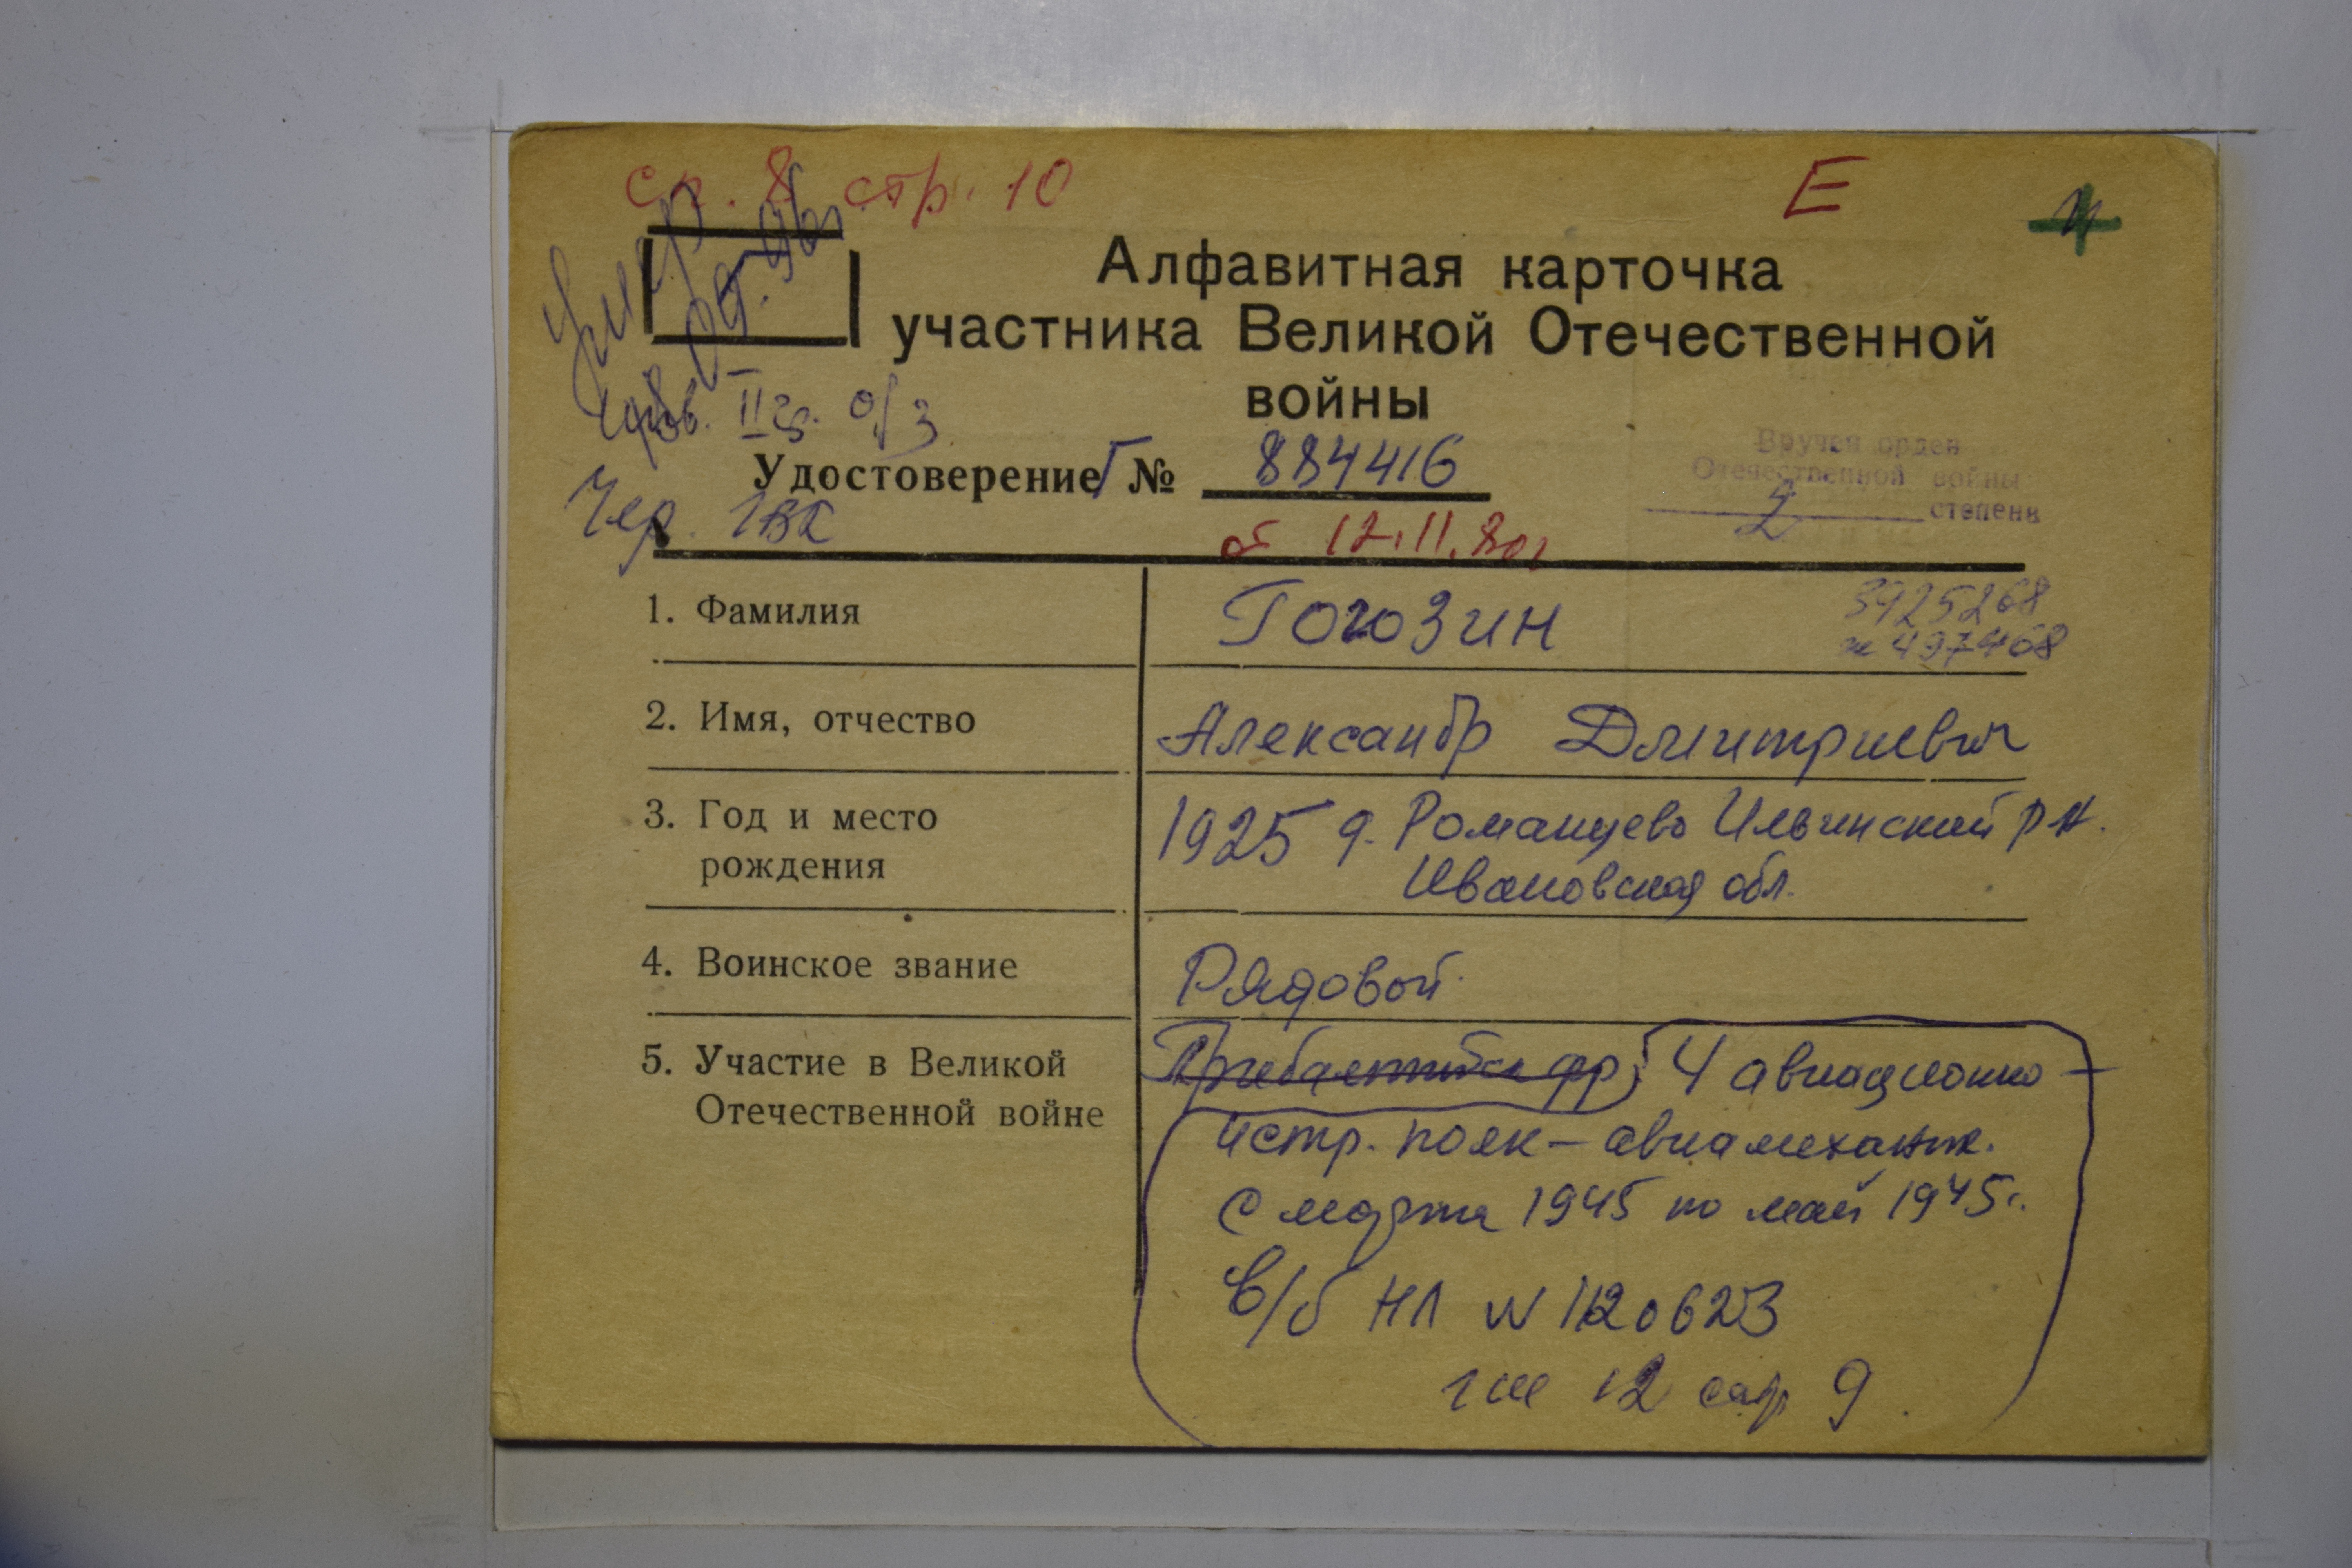 ср. 8 стр. 10
Е
Умер
09.96г
Алфавитная карточка
участника Великой Отечественной
войны
инв. II гр. о/з
Удостоверение Г № 884416
Чер. ГВК
от 12.11.80г
Вручен орден
Отечественной войны
2 степени
1. Фамилия Гогозин
3925268
№ 497468
2. Имя, отчество Александр Дмитриевич
3. Год и место 1925 д. Романцево Ильинский р-н.
рождения Ивановская обл.
4. Воинское звание Рядовой.
5. Участие в Великой Прибалтийск фр; 4 авиационно-
Отечественной войне истр. полк - авиамеханик.
с марта 1945 по май 1945г.
в/б НЛ N 1120623
гш 12 стр 9.